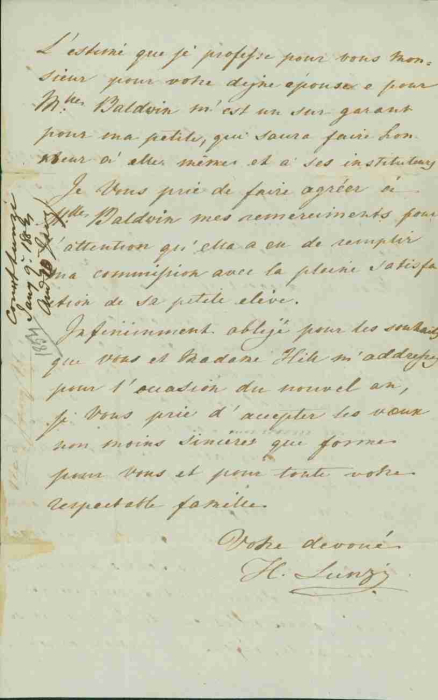 L'estime que je profésse pour vous Mon-
sieur pour votre dejne épouse e pour
Mlles Baldvin m'est un sur garant
pour ma petite, qui saura faire hon-
neur à elle même et à ses instituteurs
Je Vous prie de faire agréer à
Mlles Baldvin mes remerciments pour
l'attention qu'ella a eu de remplir
ma commission avec la pleine satisfa-
ction de sa petite elève.
Infiniement obligé pour les souhaits
que vous et Madame Hill m'addressez
pour l'occasion du nouvel an,
je Vous prie d'accepter les vœux
non moins sincères que forme
pour vous et pour toute votre
respectable famille
Votre devoué
H. Lunzi
Count Lunzi
Jany 9.
1854